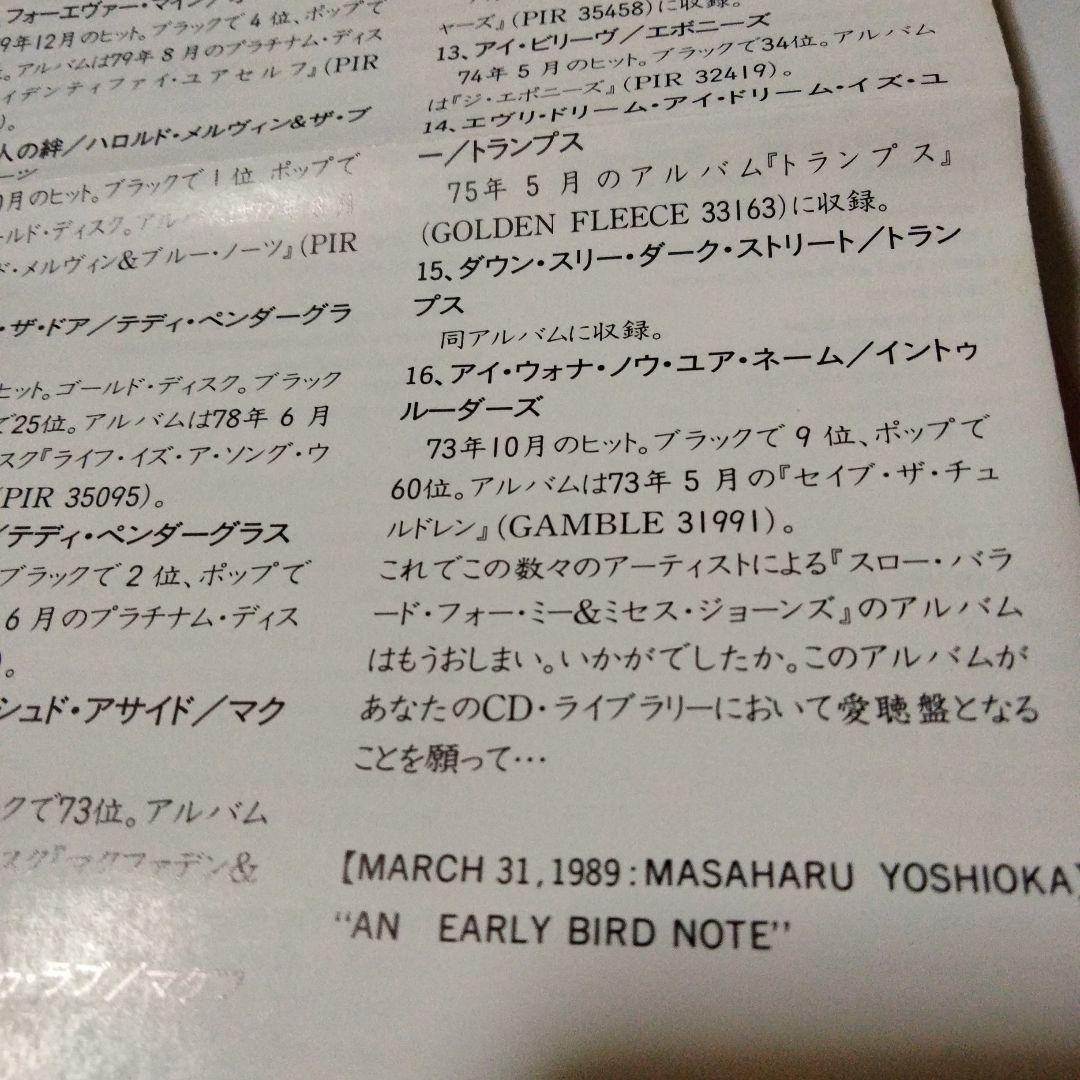 フォーエヴァー・マイン
9年12月のヒット。ブラックで4位、ポップで
。アルバムは79年8月のプラチナム・ディス
イデンティファイ・ユアセルフ』(PIR
)。
人の絆/ハロルド・メルヴィン&ザ・ブ
月のヒット。ブラックで1位 ポップで
ールド・ディスク。アル
ド・メルヴィン&ブルー・ノーツ』(PIR
・ザ・ドア/テディ・ペンダーグラ
ヒット。ゴールド・ディスク。ブラック
で25位。アルバムは78年6月
スク『ライフ・イズ・ア・ソング・ウ
(PIR 35095)。
/テディ・ペンダーグラス
ブラックで2位、ポップで
6月のプラチナム・ディス
)。
シュド・アサイド/マク
クで73位。アルバム
スク『マクファデン&
ゥ・ラブ/マクフ
ャーズ』(PIR 35458)に収録。
13、アイ・ビリーヴ/エボニーズ
74年5月のヒット。ブラックで34位。アルバム
は『ジ・エボニーズ』(PIR 32419)。
14、エヴリ・ドリーム・アイ・ドリーム・イズ・ユ
ー/トランプス
75年5月のアルバム『トランプス』
(GOLDEN FLEECE 33163)に収録。
15、ダウン・スリー・ダーク・ストリート/トラン
プス
同アルバムに収録。
16、アイ・ウォナ・ノウ・ユア・ネーム/イントゥ
ルーダーズ
73年10月のヒット。ブラックで9位、ポップで
60位。アルバムは73年5月の『セイブ・ザ・チュ
ルドレン』(GAMBLE 31991)。
これでこの数々のアーティストによる『スロー・バラ
ード・フォー・ミー&ミセス・ジョーンズ』のアルバム
はもうおしまい。いかがでしたか。このアルバムが
あなたのCD・ライブラリーにおいて愛聴盤となる
ことを願って…
【MARCH 31,1989:MASAHARU YOSHIOKA】
"AN EARLY BIRD NOTE"